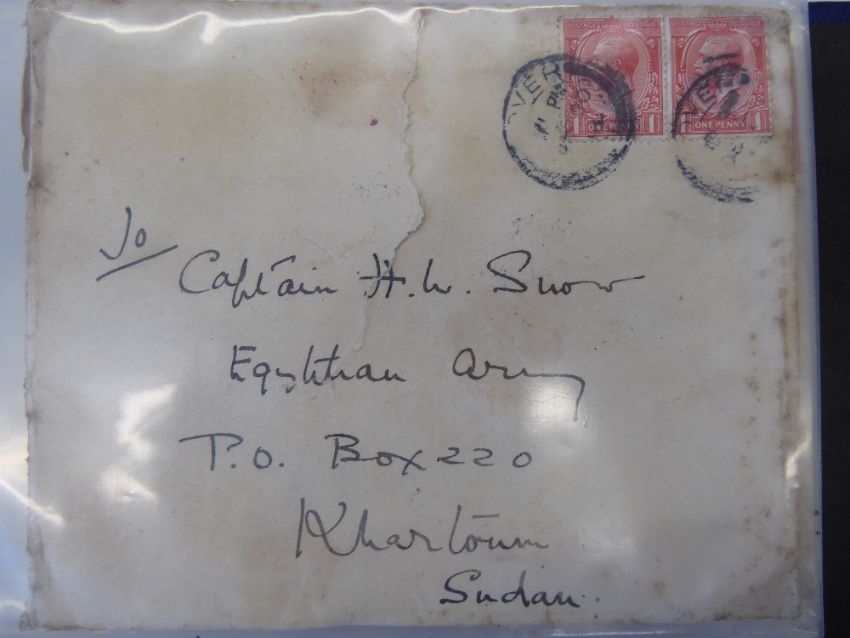 1 ONE PENNY 1
1 ONE PENNY 1
To
Captain H.W. Snow
Egyptian Army
P.O. Box 220
Khartoum
Sudan.